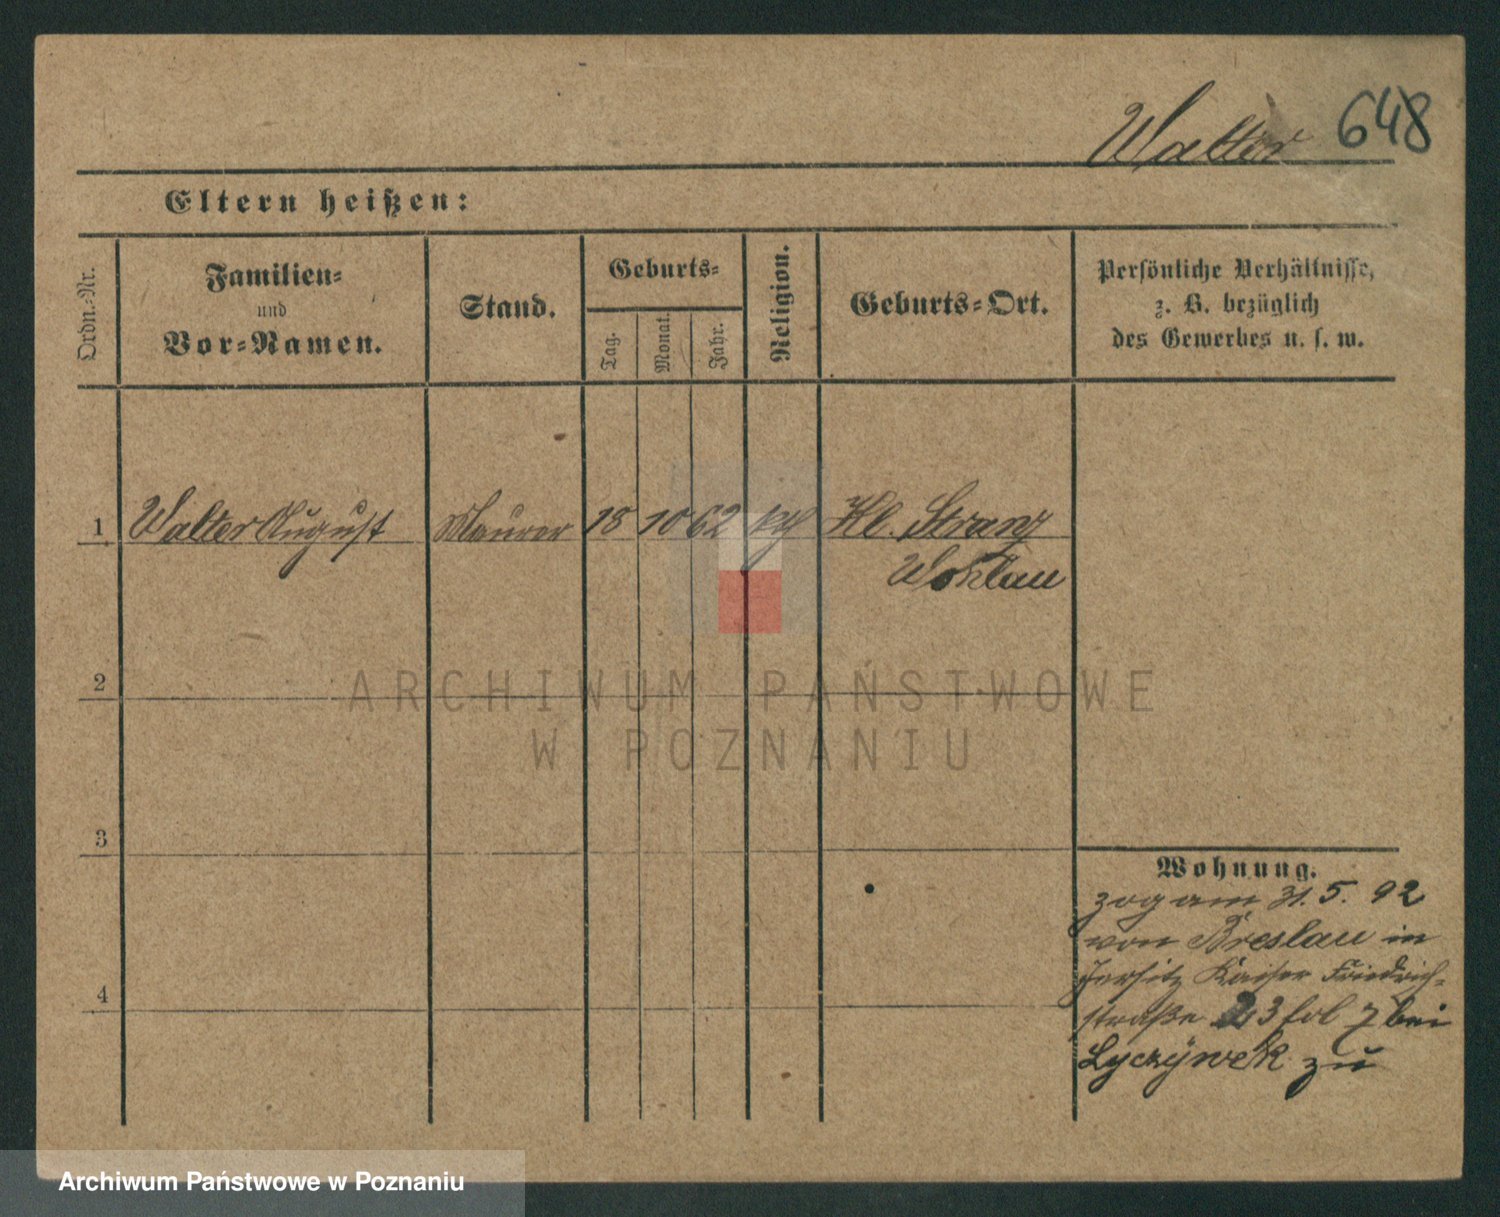 Walter 648
Eltern heißen:
Ordn.-Nr.
Familien-
und
Vor-Namen.
Stand.
Geburts-
Tag.
Monat.
Jahr.
Religion.
Geburts-Ort.
Persönliche Verhältnisse,
z. B. bezüglich
des Gewerbes u. s. w.
1 Walter August Maurer 18 10 62 kth Kl. Stranz
Wohlau
2
ARCHIWUM PAŃSTWOWE
W POZNANIU
3
Wohnung.
zog am 31. 5. 92
von Breslau in
4
Jersitz Kaiser Friedrich-
straße 23 fol 7 bei
Lyczýwek zu
Archiwum Państwowe w Poznaniu